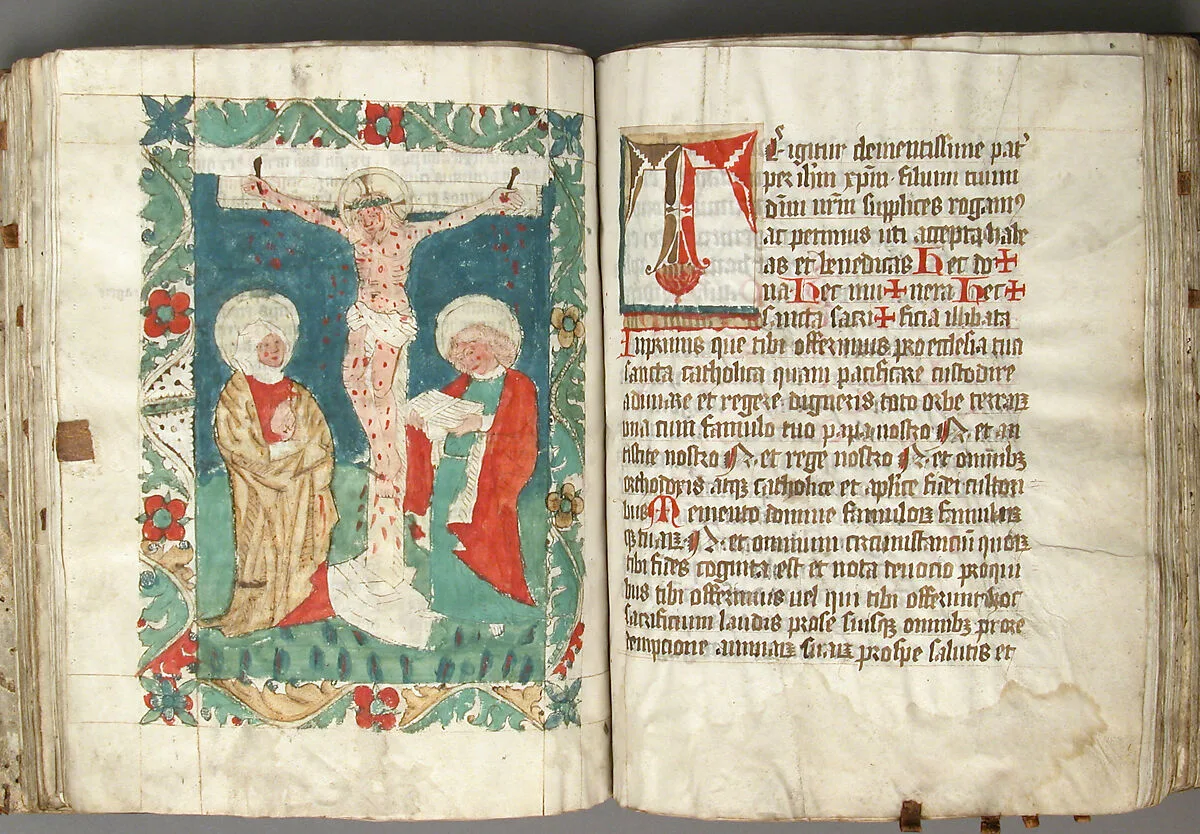 TE igitur clementissime pat᷑
per ihm xpm filium tuum
dnm nrm supplices rogamꝰ
ac petimus uti accepta habe
as et benedicas Hec do✚
na Hec mu✚nera Hec✚
sancta sacri✚ficia illibata
Inprimis que tibi offerimus pro ecclesia tua
sancta catholica quam pacificare custodire
adunare et regere digneris toto orbe terraꝝ
vna cum famulo tuo papa nostro N. et an
tistite nostro N. et rege nostro N. et omnibꝫ
orthodoxis atqꝫ catholice et aplice fidei cultori
bus Memento domine famuloꝝ famulaꝝ
qꝫ tuaꝝ N. et omnium circumstanciū quoꝝ
tibi fides cognita est et nota deuocio pro qui
bus tibi offerimus uel qui tibi offerunt hoc
sacrificium laudis pro se suisqꝫ omnibꝫ pro re
demptione animaꝝ suaꝝ pro spe salutis et